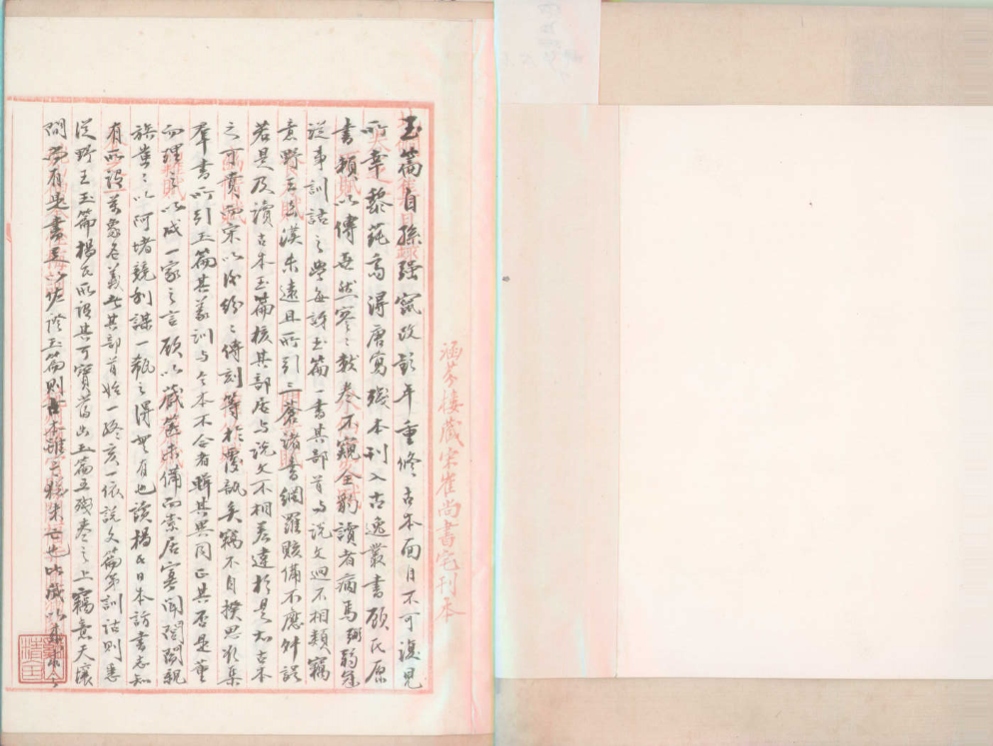 玉篇自孫强竄改彭年重修古本面目不可復見
所幸黎蒓齋得唐寫殘本刊入古逸叢書顧氏原
書賴以傳世然寥寥數卷不窺全豹讀者病焉弱冠
從事訓詁之學每訝玉篇一書其部首与說文迥不相類竊
意野王去漢未遠且所引三蒼諸書網羅賅備不應舛誤
若是及讀古本玉篇核其部居与說文不相差違於是知古本
之可貴而宋以後紛紛傳刻等於覆瓿矣竊不自揆思欲集
羣書所引玉篇其義訓与今本不合者聯其異同正其否是董
而理之以成一家之言顧以藏箧未備而索居寡聞閭閈親
族輩輩以阿堵競利謀一瓻之得無有也讀楊氏日本訪書志知
有所謂萬象名義者其部首始一終亥一依說文篇第訓詁則悉
從野王玉篇楊氏所謂其可寶當出玉篇五殘卷之上竊意天壤
間而有是書足以佐證玉篇則古本雖亡猶未亡也
涵芬樓藏宋崔尚書宅刊本